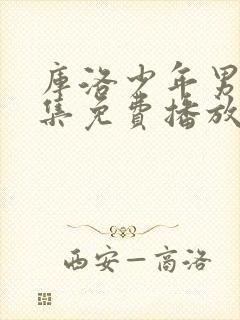 库洛少年男
集免费播放
西安—商洛